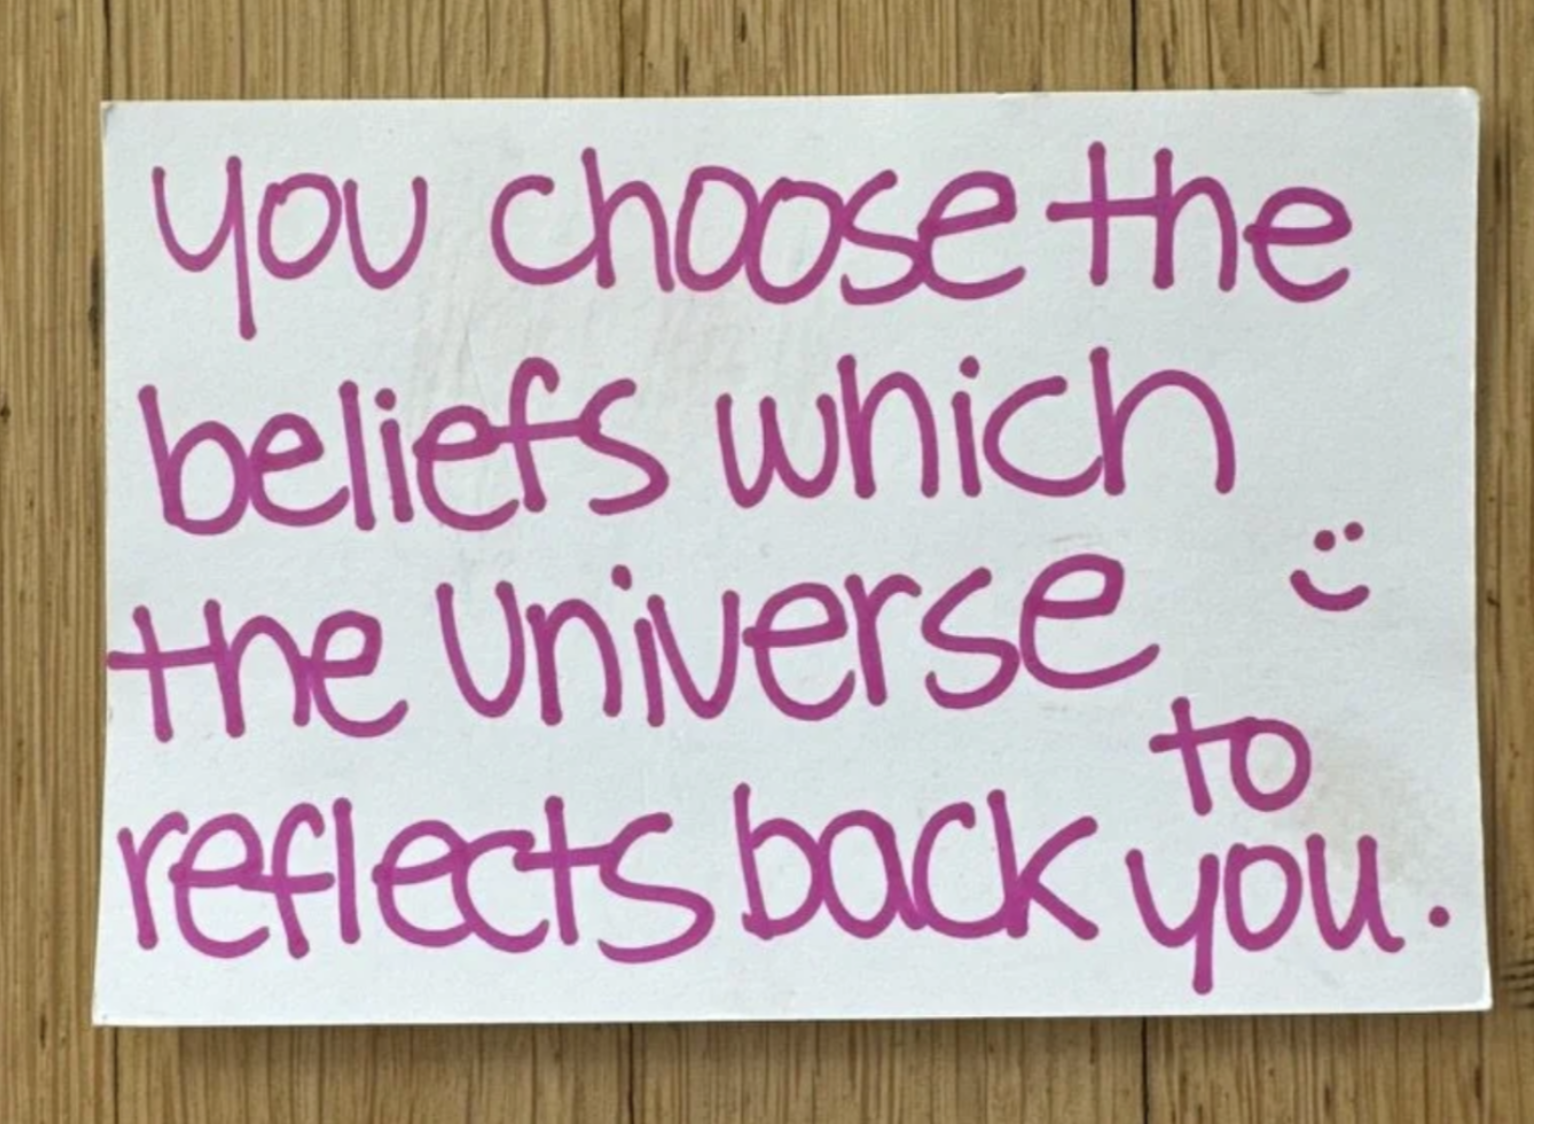 you choose the
beliefs which
the Universe
reflects back to
you.